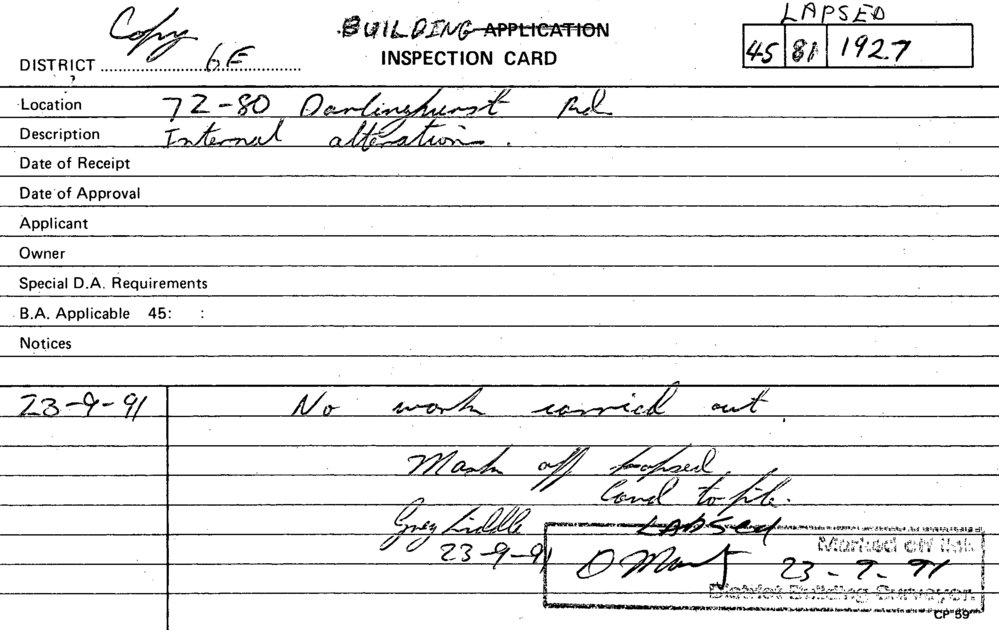 Copy
BUILDING APPLICATION
LAPSED
DISTRICT 6E
INSPECTION CARD
45 81 1927
Location 72-80 Darlinghurst Rd
Description Internal alterations.
Date of Receipt
Date of Approval
Applicant
Owner
Special D.A. Requirements
B.A. Applicable 45: :
Notices
23-9-91 No work carried out
Mark off lapsed.
Card to file.
Greg Liddle
LAPSED
23-9-91
Marked off list
23-9-91
District Building Surveyor.
CP 59